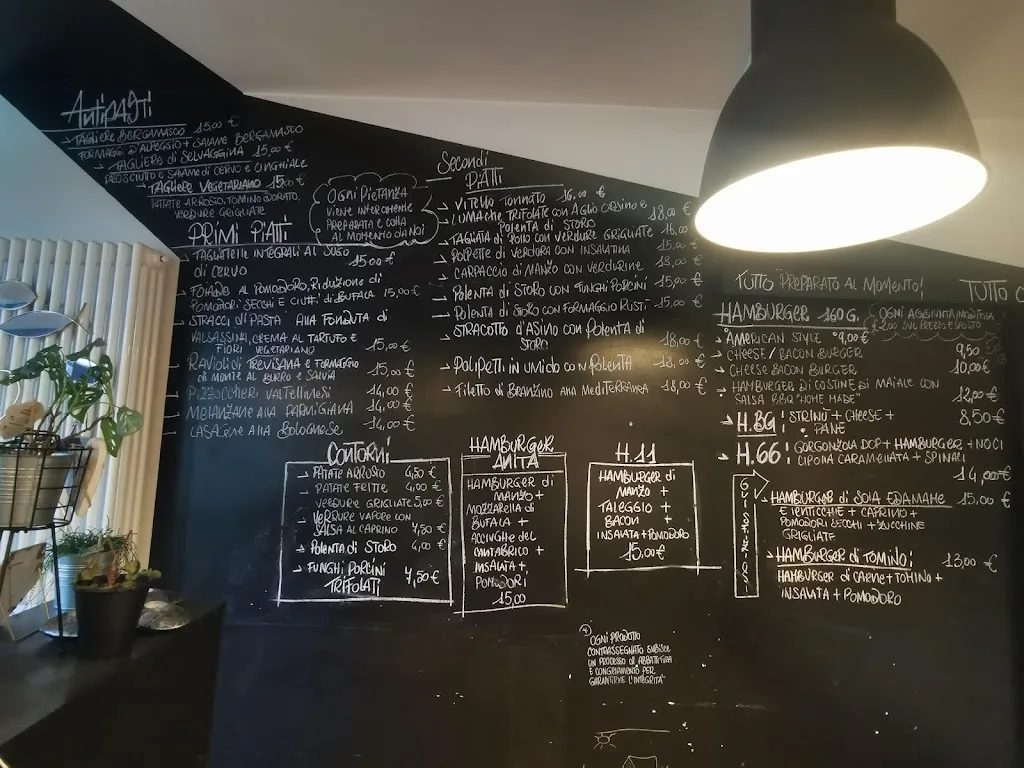 Antipasti
TAGLIERE BERGAMASCO 15,00 €
FORMAGGI D'ALPEGGIO + SALAME BERGAMASCO
TAGLIERE di SELVAGGINA 15,00 €
PROSCIUTO E SALAME di CERVO E CINGHIALE
TAGLIERE VEGETARIANO 15,00 €
PATATE ARROSTO, TOMINO DORATO,
VERDURE GRIGLIATE
PRIMI PIATTI
TAGLIATELLE INTEGRALI AL SUGO
di CERVO 15,00 €
AL POMODORO, RIDUZIONE DI
POMODORI SECCHI E CIUFFI di BUFALA 15,00 €
STRACCI DI PASTA ALLA FONDUTA di
VALSASSINA, CREMA AL TARTUFO E
FIORI VEGETARIANO 15,00 €
RAVIOLI di TREVISANA E FORMAGGIO
DI MONTE AL BURRO E SALVIA 15,00 €
PIZZOCCHERI VALTELLINESI 14,00 €
MELANZANE ALLA PARMIGIANA 14,00 €
LASAGNE ALLA BOLOGNESE 14,00 €
OGNI PIETANZA
VIENE INTERAMENTE
PREPARATA E COTTA
AL MOMENTO DA NOI
Secondi
PIATTI
VITELLO TONNATO 16,00 €
LUMACHE TRIFOLATE CON AGLIO ORSINO E
POLENTA DI STORO 18,00 €
TAGLIATA di POLLO CON VERDURE GRIGLIATE 16,00
POLPETTE di VERDURA CON INSALATINA 15,00 €
CARPACCIO di MANZO CON VERDURINE 18,00 €
POLENTA di STORO CON FUNGHI PORCINI 15,00 €
POLENTA di STORO CON FORMAGGIO FUSTI 15,00 €
STRACOTTO D'ASINO CON POLENTA di
STORO 18,00 €
POLIPETTI IN UMIDO CON POLENTA 18,00 €
FILETTO di BRANZINO ALLA MEDITERRANEA 18,00 €
CONTORNI
PATATE ARROSTO 4,50 €
PATATE FRITTE 4,00 €
VERDURE GRIGLIATE 5,00 €
VERDURE VAPORE CON
SALSA AL CAPRINO 4,50 €
POLENTA di STORO 4,00 €
FUNGHI PORCINI
TRIFOLATI 7,50 €
HAMBURGER
ANITA
HAMBURGER di
MANZO +
MOZZARELLA DI
BUFALA +
ACCIUGHE DEL
CANTABRICO +
INSALATA +
POMODORI
15,00
H.11
HAMBURGER di
MANZO +
TALEGGIO +
BACON +
INSALATA + POMODORO
15,00 €
TUTTO PREPARATO AL MOMENTO!
TUTTO
HAMBURGER 160 G.
OGNI AGGIUNTA/MODIFICA
€ 2,00 SUL PREZZO ESPOSTO
AMERICAN STYLE 9,00 €
CHEESE / BACON BURGER 9,50
CHEESE BACON BURGER 10,00 €
HAMBURGER di COSTINE DI MAIALE CON
SALSA BBQ "HOME MADE" 12,00 €
H.BG: STRINÙ + CHEESE +
PANE 8,50 €
H.66: GORGONZOLA DOP + HAMBURGER + NOCI
CIPOLLA CARAMELLATA + SPINACI
14,00 €
HAMBURGER di SOIA EDAMAME 15,00 €
E LENTICCHIE + CAPRINO +
POMODORI SECCHI + ZUCCHINE
GRIGLIATE
HAMBURGER di TOMINO: 13,00 €
HAMBURGER di CARNE + TOMINO +
INSALATA + POMODORO
OGNI PRODOTTO
CONTRASSEGNATO SUBISCE
UN PROCESSO DI ABBATTITURA
E CONGELAMENTO PER
GARANTIRVE L'INTEGRITA'